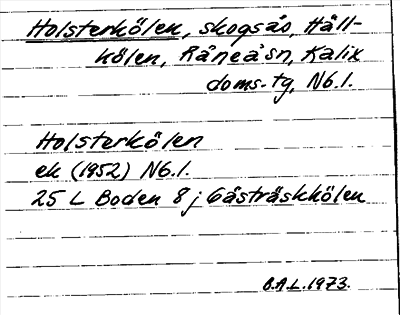 Holsterkölen, skogsås, Håll-
kölen, Råneå sn, Kalix
doms. tg, Nb.l.
Holsterkölen
ek (1952) Nb.l.
25 L Boden 8 j Gästräskkölen
B.A.L. 1973.